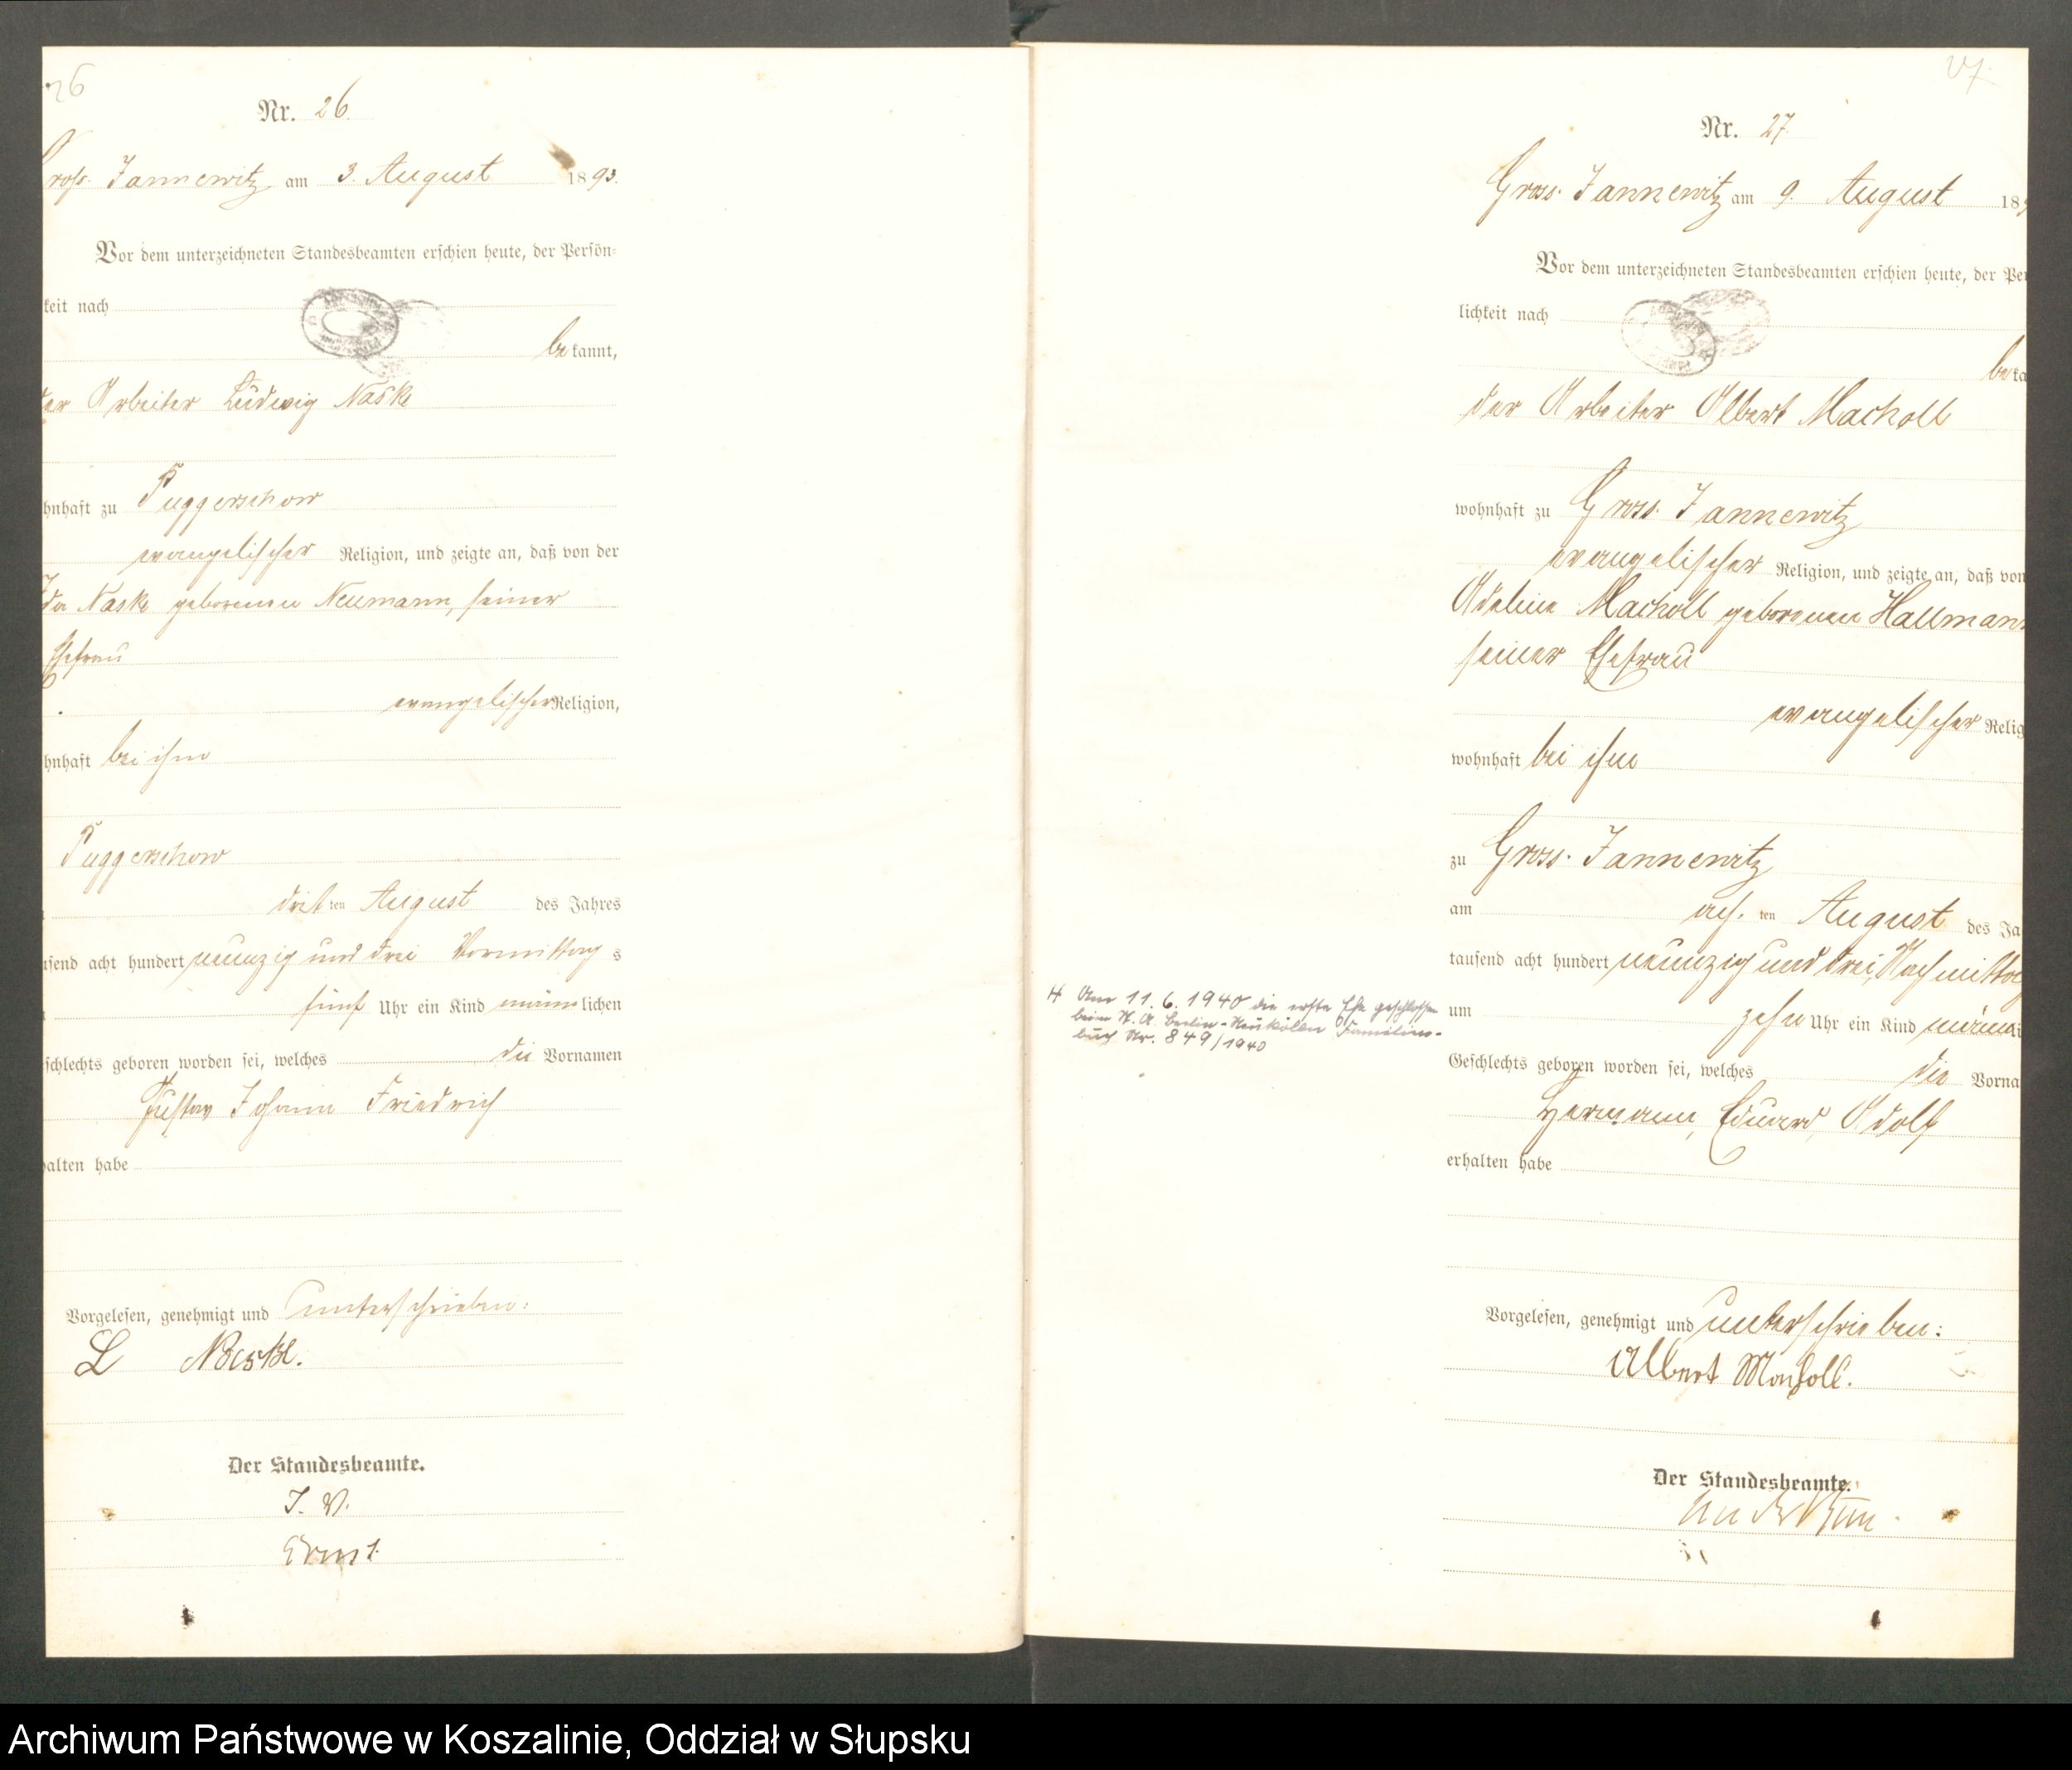 26
Nr. 26.
ross. Jannewitz am 3. August 1893.
Vor dem unterzeichneten Standesbeamten erschien heute, der Persön-
keit nach
bekannt,
der Arbeiter Ludwig Naske
hnhaft zu Puggerschow
evangelischer Religion, und zeigte an, daß von der
Ida Naske geborenen Neumann, seiner
Ehefrau
evangelischer Religion,
hnhaft bei ihm
Puggerschow
dritten August des Jahres
usend acht hundert neunzig und drei Vormittags
fünf Uhr ein Kind männlichen
schlechts geboren worden sei, welches die Vornamen
Gustav Johann Friedrich
alten habe
Vorgelesen, genehmigt und unterschrieben:
L Naske.
Der Standesbeamte.
J. V.
27
Nr. 27.
Gross. Jannewitz am 9. August 189
Vor dem unterzeichneten Standesbeamten erschien heute, der Per
lichkeit nach
beka
der Arbeiter Albert Macholl
wohnhaft zu Gross. Jannewitz
evangelischer Religion, und zeigte an, daß von
Adeline Macholl geborenen Hallmann
seiner Ehefrau
evangelischer Relig
wohnhaft bei ihm
zu Gross. Jannewitz
am ach.ten August des Ja
tausend acht hundert neunzig und drei, Nachmittag
um zehn Uhr ein Kind männli
Geschlechts geboren worden sei, welches die Vorna
Hermann, Eduard, Adolf
erhalten habe
H Am 11.6.1940 die erste Ehe geschlossen
beim St. A. Berlin-Neukölln Familien-
buch Nr. 849/1940
Vorgelesen, genehmigt und unterschrieben:
Albert Macholl.
Der Standesbeamte.
Archiwum Państwowe w Koszalinie, Oddział w Słupsku